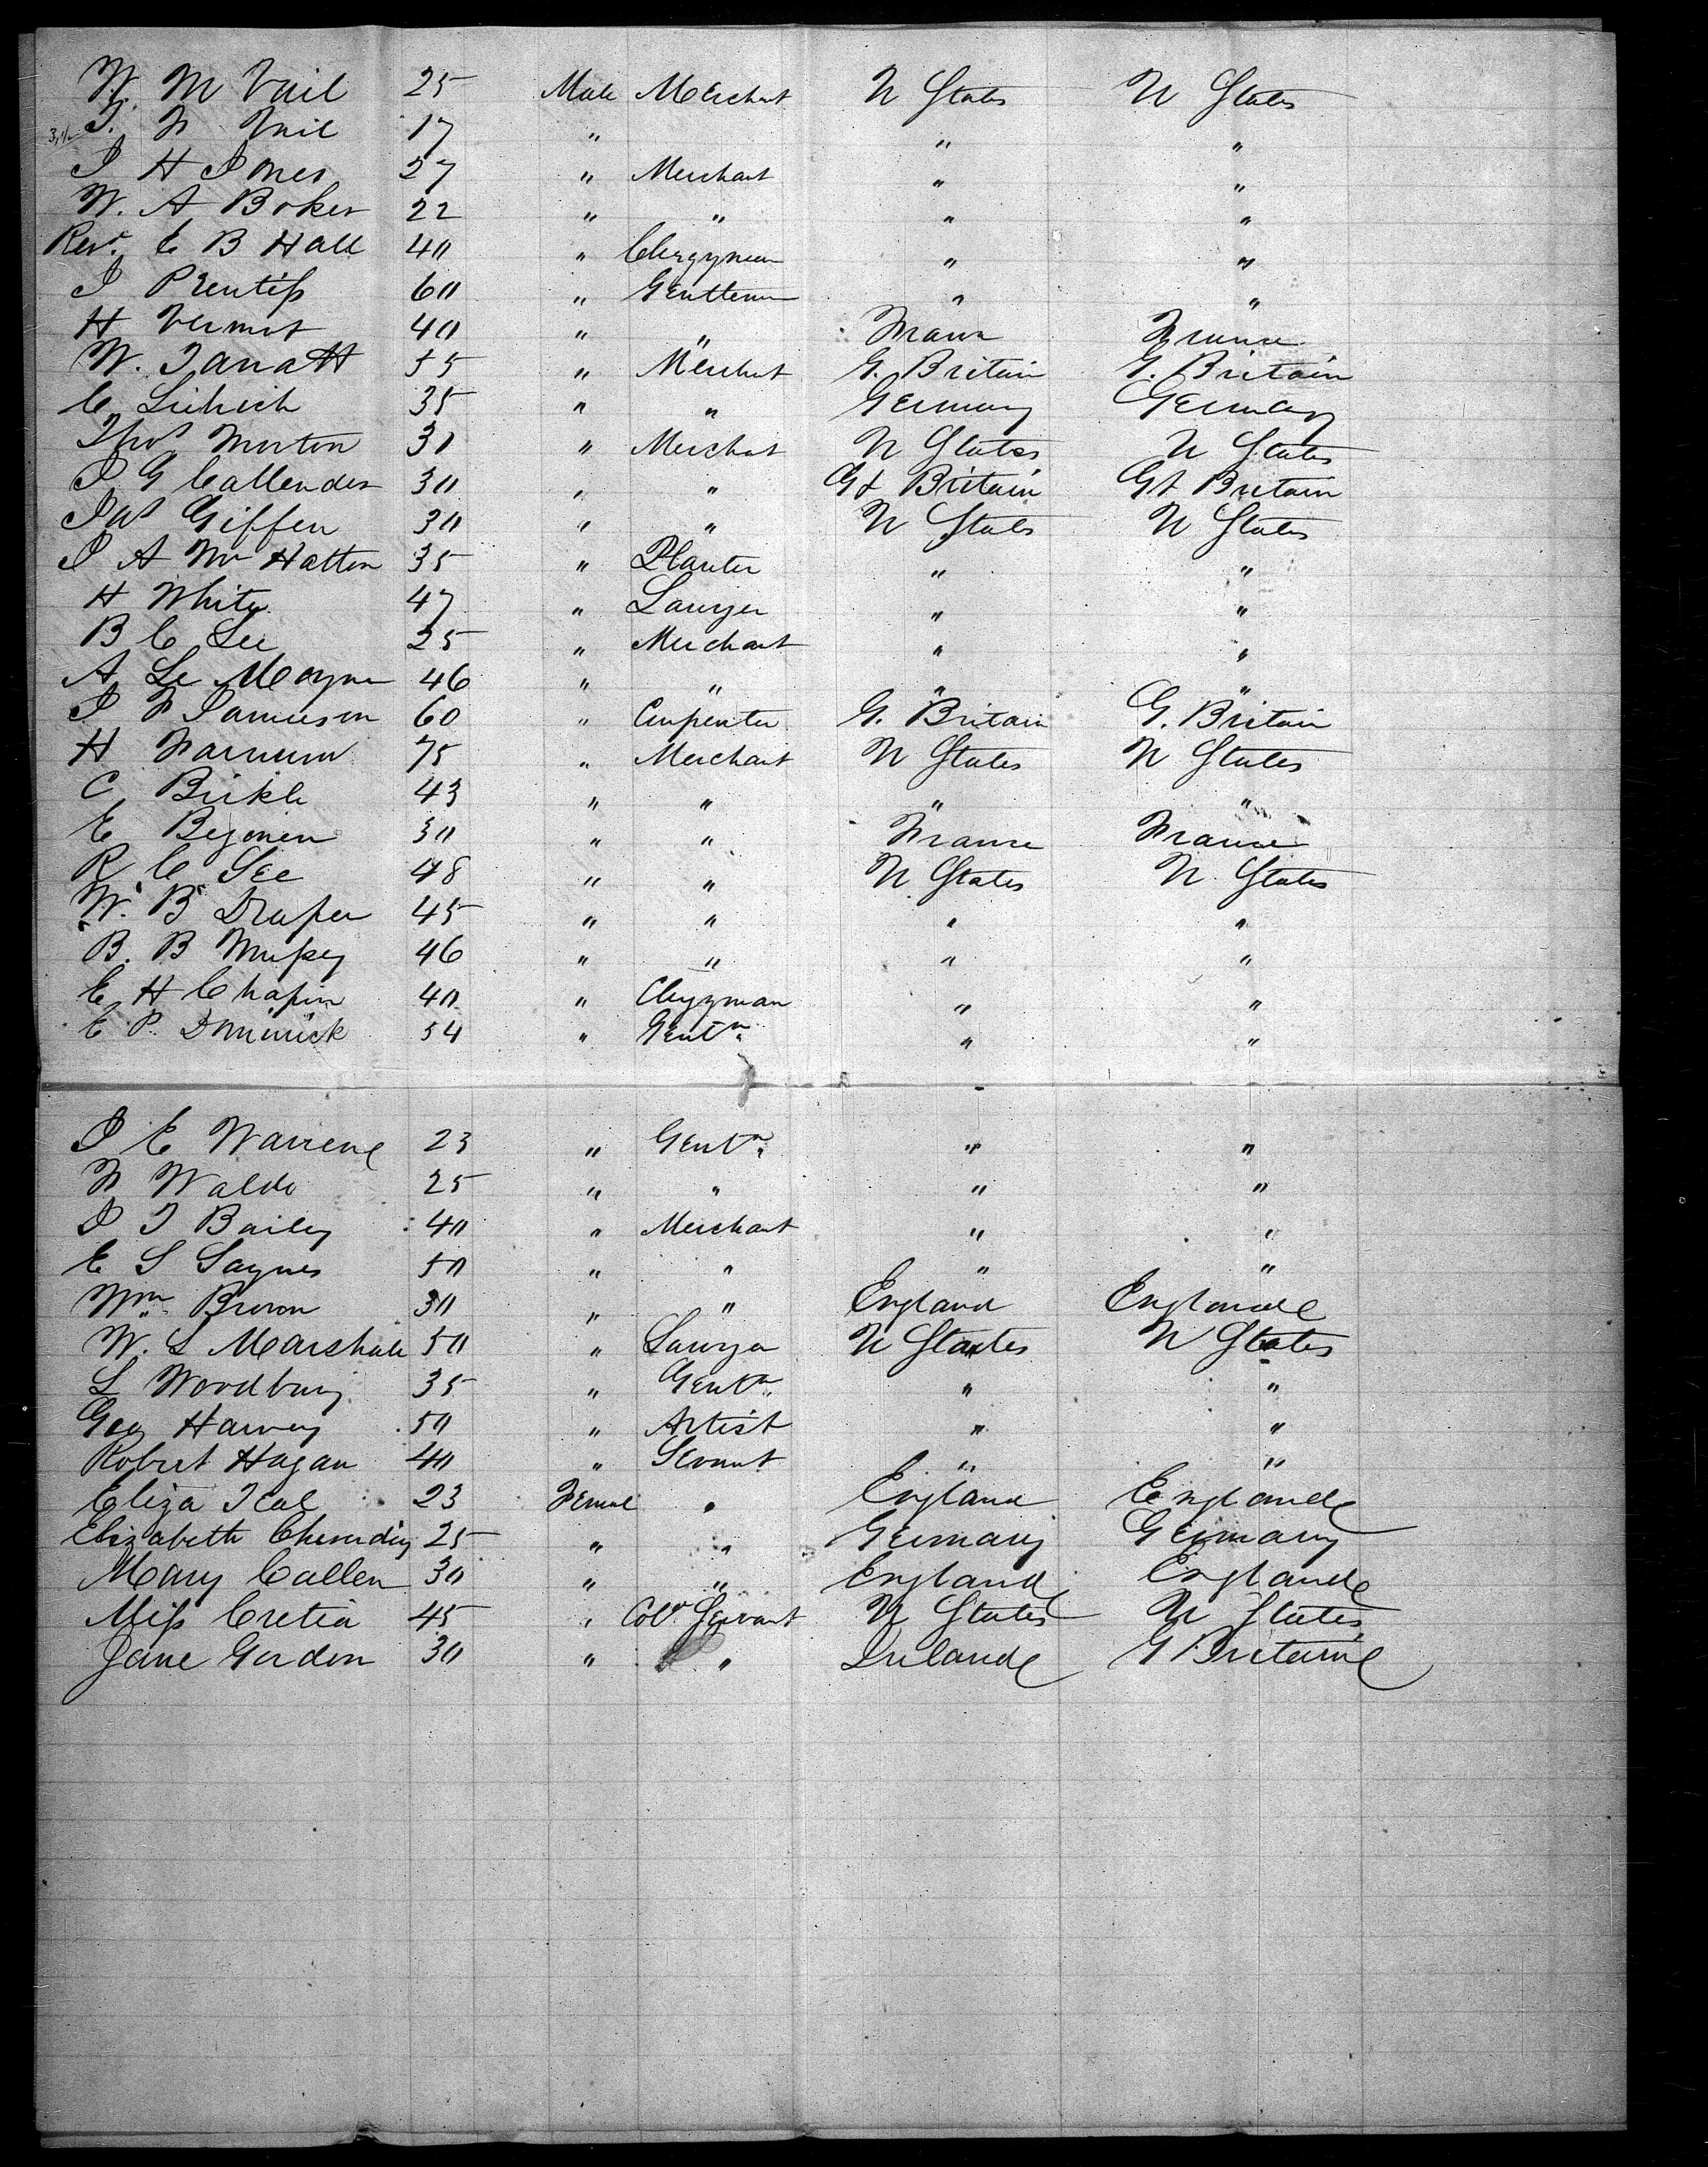 W. M Vail 25 Male Merchant U States U States
T. F Vail 17 " " "
J H Jones 27 " Merchant " "
W. A Boker 22 " " " "
Revd. E B Hall 40 " Clergyman " "
J Prentiss 60 " Gentleman " "
H Vermot 40 " " France France
W. Tanatt 55 " Merchant G. Britain G. Britain
C 35 " " Germany Germany
Thos Morton 30 " Merchant U States U States
J G Callender 30 " " Gt Britain Gt Britain
Jas Giffen 30 " " U States U States
J A Mc Hatton 35 " Planter " "
H White 47 " Lawyer " "
B C Lee 25 " Merchant " "
A Le Moyne 46 " " " "
J F Jamieson 60 " Carpenter G. Britain G. Britain
H Farnum 75 " Merchant U States U States
C Birkle 43 " " " "
E 30 " " France France
R C See 48 " " U States U States
W. B Draper 45 " " " "
B. B Mussey 46 " " " "
E H Chapin 40 " Clergyman " "
E P. Dimmick 54 " Gentn " "
J E Warren 23 " Gentn " "
F Waldo 25 " " " "
J T Bailey 40 " Merchant " "
E S Saynes 50 " " " "
Wm Brown 30 " " England England
W. L Marshall 50 " Lawyer U States U States
L Woodbury 35 " Gentn " "
Geo Harvey 50 " Artist " "
Robert Hagan 40 " Servant " "
Eliza Teal 23 Female " England England
Elizabeth 25 " " Germany Germany
Mary Callen 30 " " England England
Miss Cretia 45 " Cold Servant U States U States
Jane Gordon 30 " " Ireland G Britain